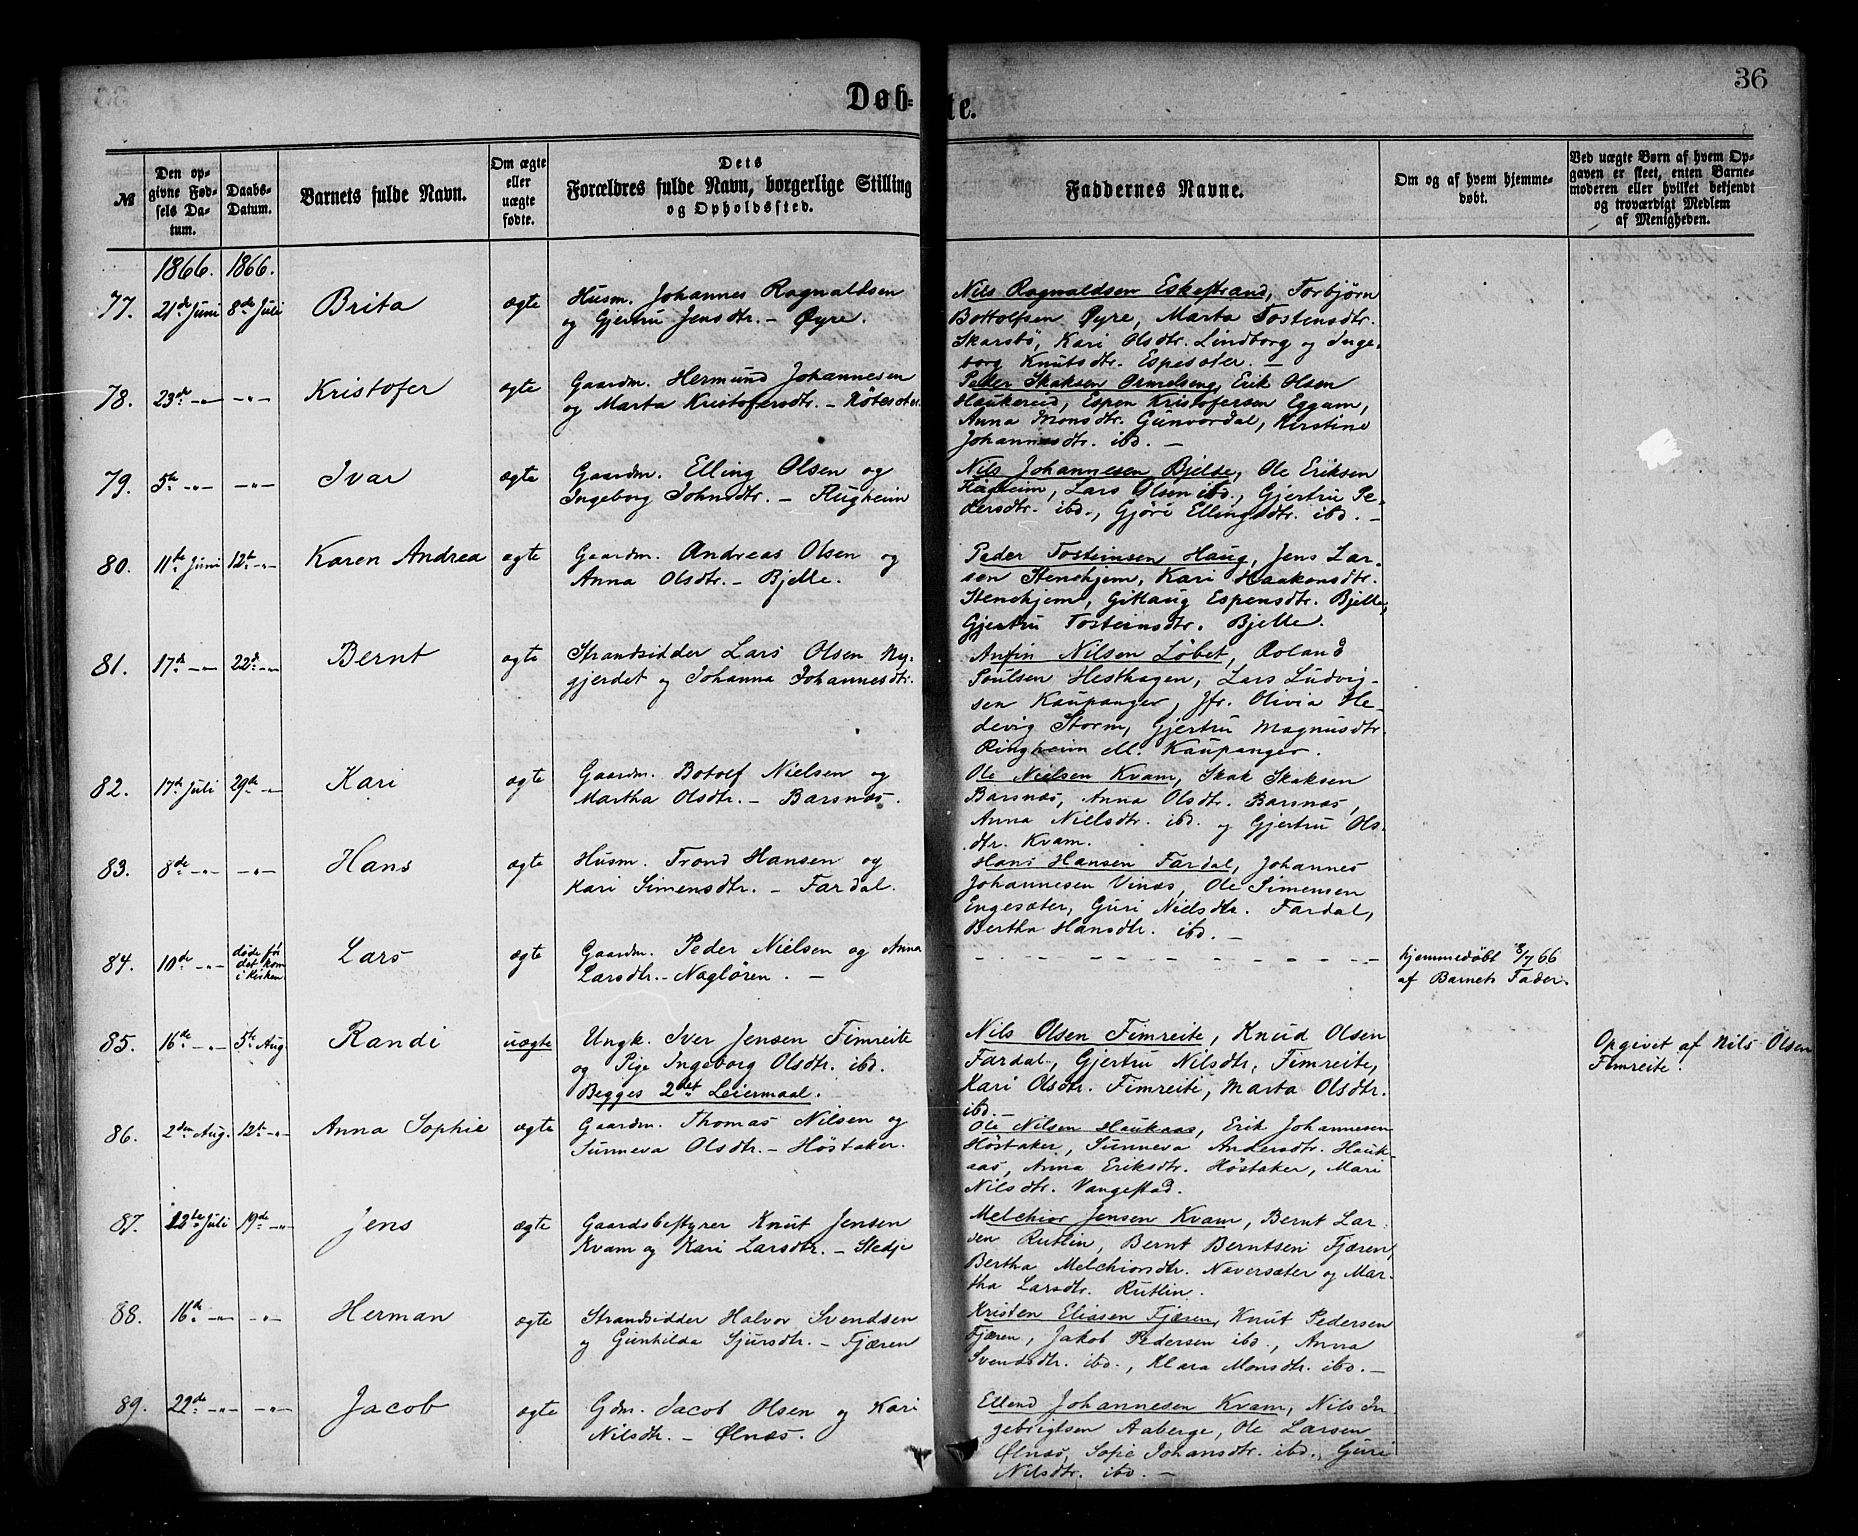 Døb-
te.
36
№
Den op-
givne Fød-
sels Da-
tum.
Daabs-
Datum.
Barnets fulde Navn.
Om ægte
eller
uægte
fødte.
Dets
Forældres fulde Navn, borgerlige Stilling
og Opholdssted.
Faddernes Navne.
Om og af hvem hjemme-
døbt.
Ved uægte Børn af hvem Op-
gaven er skeet, enten Barne-
moderen eller hvilket bekjendt
og troværdigt Medlem
af Menigheden.
1866. 1866.
77. 21de Juni 8de Juli Brita ægte
Husm. Johannes Ragnaldsen
og Gjertru Jensdtr. – Øyre.
Nils Ragnaldsen Eskestrand, Torbjørn
Bottolfsen Øyre, Marta Tostensdtr.
Skarsbø, Kari Olsdtr. Lindborg og Inge-
borg Knutsdtr. Espesæter. –
78. 23de –"– –"– Kristofer ægte
Gaardm. Hermund Johannesen
og Marta Kristofersdtr. –
Peder Skaksen Ormelseng, Erik Olsen
Haukereid, Espen Kristofersen Eggum,
Anna Monsdtr. Gunvordal, Kerstine
Johannesdtr. ibd. –
79. 5te –"– –"– Ivar ægte
Gaardm. Elling Olsen og
Ingeborg Johnsdtr. – Flugheim
Nils Johannesen Bjelde, Ole Eriksen
Hagheim, Lars Olsen ibd., Gjertru Pe-
dersdtr. ibd., Gjøri Ellingsdtr. ibd. –
80. 11te Juni 12te –"– Karen Andrea ægte
Gaardm. Andreas Olsen og
Anna Olsdtr. – Bjelle.
Peder Tosteinsen Haug, Jens Lar-
sen Stenehjem, Kari Haakonsdtr.
Stenehjem, Gitlaug Espensdtr. Bjelle,
Gjertru Tosteinsdtr. Bjelle.
81. 17de –"– 22de –"– Bernt ægte
Strandsidder Lars Olsen Ny-
gjerdet og Johanna Johannesdtr.
Anfin Nilsen Løbet, Roland
Poulsen Hesthagen, Lars Ludvig-
sen Kaupanger, Jfr. Olivia He-
devig Storm, Gjertru Magnusdtr.
Ringheim M. Kaupanger.
82. 17de Juli 29de –"– Kari ægte
Gaardm. Botolf Nielsen og
Martha Olsdtr. – Barsnæs.
Ole Nielsen Kvam, Skak Skaksen
Barsnæs, Anna Olsdtr. Barsnæs,
Anna Nielsdtr. ibd. og Gjertru Ols-
dtr. Kvam.
83. 8de –"– –"– Hans ægte
Husm. Trond Hansen og
Kari Simensdtr. – Fardal.
Hans Hansen Fardal, Johannes
Johannesen Vinæs, Ole Simensen
Engesæter, Guri Nielsdtr. Fardal,
Bertha Hansdtr. ibd. –
84. 10de –"– døde før
det kom
i Kirken Lars ægte
Gaardm. Peder Nielsen og Anna
Larsdtr. – Nagløren. –
hjemmedøbt /7 66
af Barnets Fader.
85. 16de –"– 5te Aug. Randi uægte
Ungk. Iver Jensen Fimreite
og Pige Ingeborg Olsdtr. ibd.
Begges 2det Leiermaal.
Nils Olsen Fimreite, Knud Olsen
Fardal, Gjertru Nilsdtr. Fimreite,
Kari Olsdtr. Fimreite, Marta Olsdtr.
ibd. –
Opgivet af Nils Olsen
Fimreite.
86. 2den Aug. 12te –"– Anna Sophie ægte
Gaardm. Thomas Nilsen og
Sunneva Olsdtr. – Høstaker.
Ole Nilsen Haukaas, Erik Johannesen
Høstaker, Sunneva Andersdtr. Hauk-
aas, Anna Eriksdtr. Høstaker, Mari
Nilsdtr. Vangestad.
87. 12te Juli 19de –"– Jens ægte
Gaardsbestyrer Knut Jensen
Kvam og Kari Larsdtr. – Stedje
Melchior Jensen Kvam, Bernt Lar-
sen Rutlin, Bernt Berntsen Fjæren,
Bertha Melchiorsdtr. Naversæter og Mar-
tha Larsdtr. Rutlin.
88. 16de –"– –"– Herman ægte
Strandsidder Halvor Svendsen
og Gunhilda Sjursdtr. – Fjæren
Kristen Eliasen Fjæren, Knut Pedersen
Fjæren, Jakob Pedersen ibd., Anna
Svendsdtr. ibd., Klara Monsdtr. ibd. –
89. 22de –"– –"– Jacob ægte
Gdm. Jacob Olsen og Kari
Nilsdtr. – Ølnæs.
Ellend Johannesen Kvam, Nils In-
gebrigtsen Aaberge, Ole Larsen
Ølnæs, Sofie Johansdtr. ibd., Guri
Nilsdtr. ibd. –